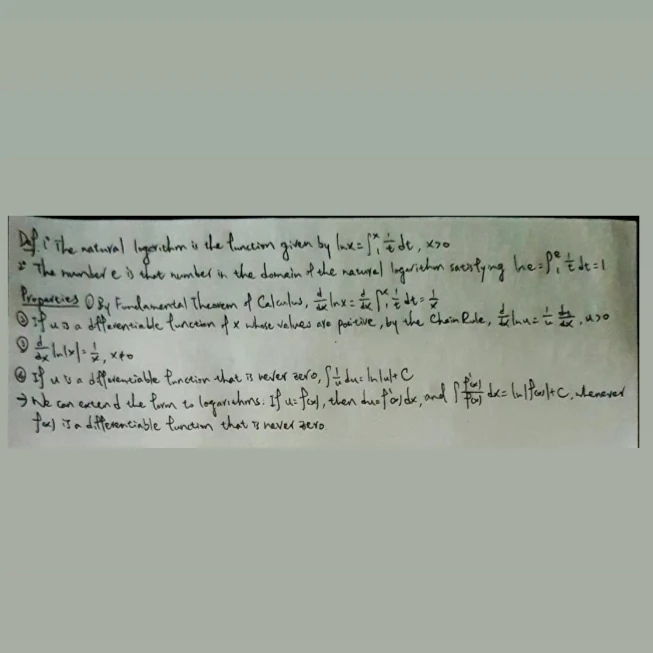 Def. 1° The natural logarithm is the function given by lnx = ∫₁ˣ 1/t dt, x>0
2° The number e is that number in the domain of the natural logarithm satisfying lne = ∫₁ᵉ 1/t dt = 1
Properties ① By Fundamental Theorem of Calculus, d/dx lnx = d/dx ∫₁ˣ 1/t dt = 1/x
② If u is a differentiable function of x whose values are positive, by the Chain Rule, d/dx lnu = 1/u du/dx, u>0
③ d/dx ln|x| = 1/x, x≠0
④ If u is a differentiable function that is never zero, ∫ 1/u du = ln|u|+C
→ We can extend the form to logarithms: If u=f(x), then du=f'(x)dx, and ∫ f'(x)/f(x) dx = ln|f(x)|+C, whenever
f(x) is a differentiable function that is never zero